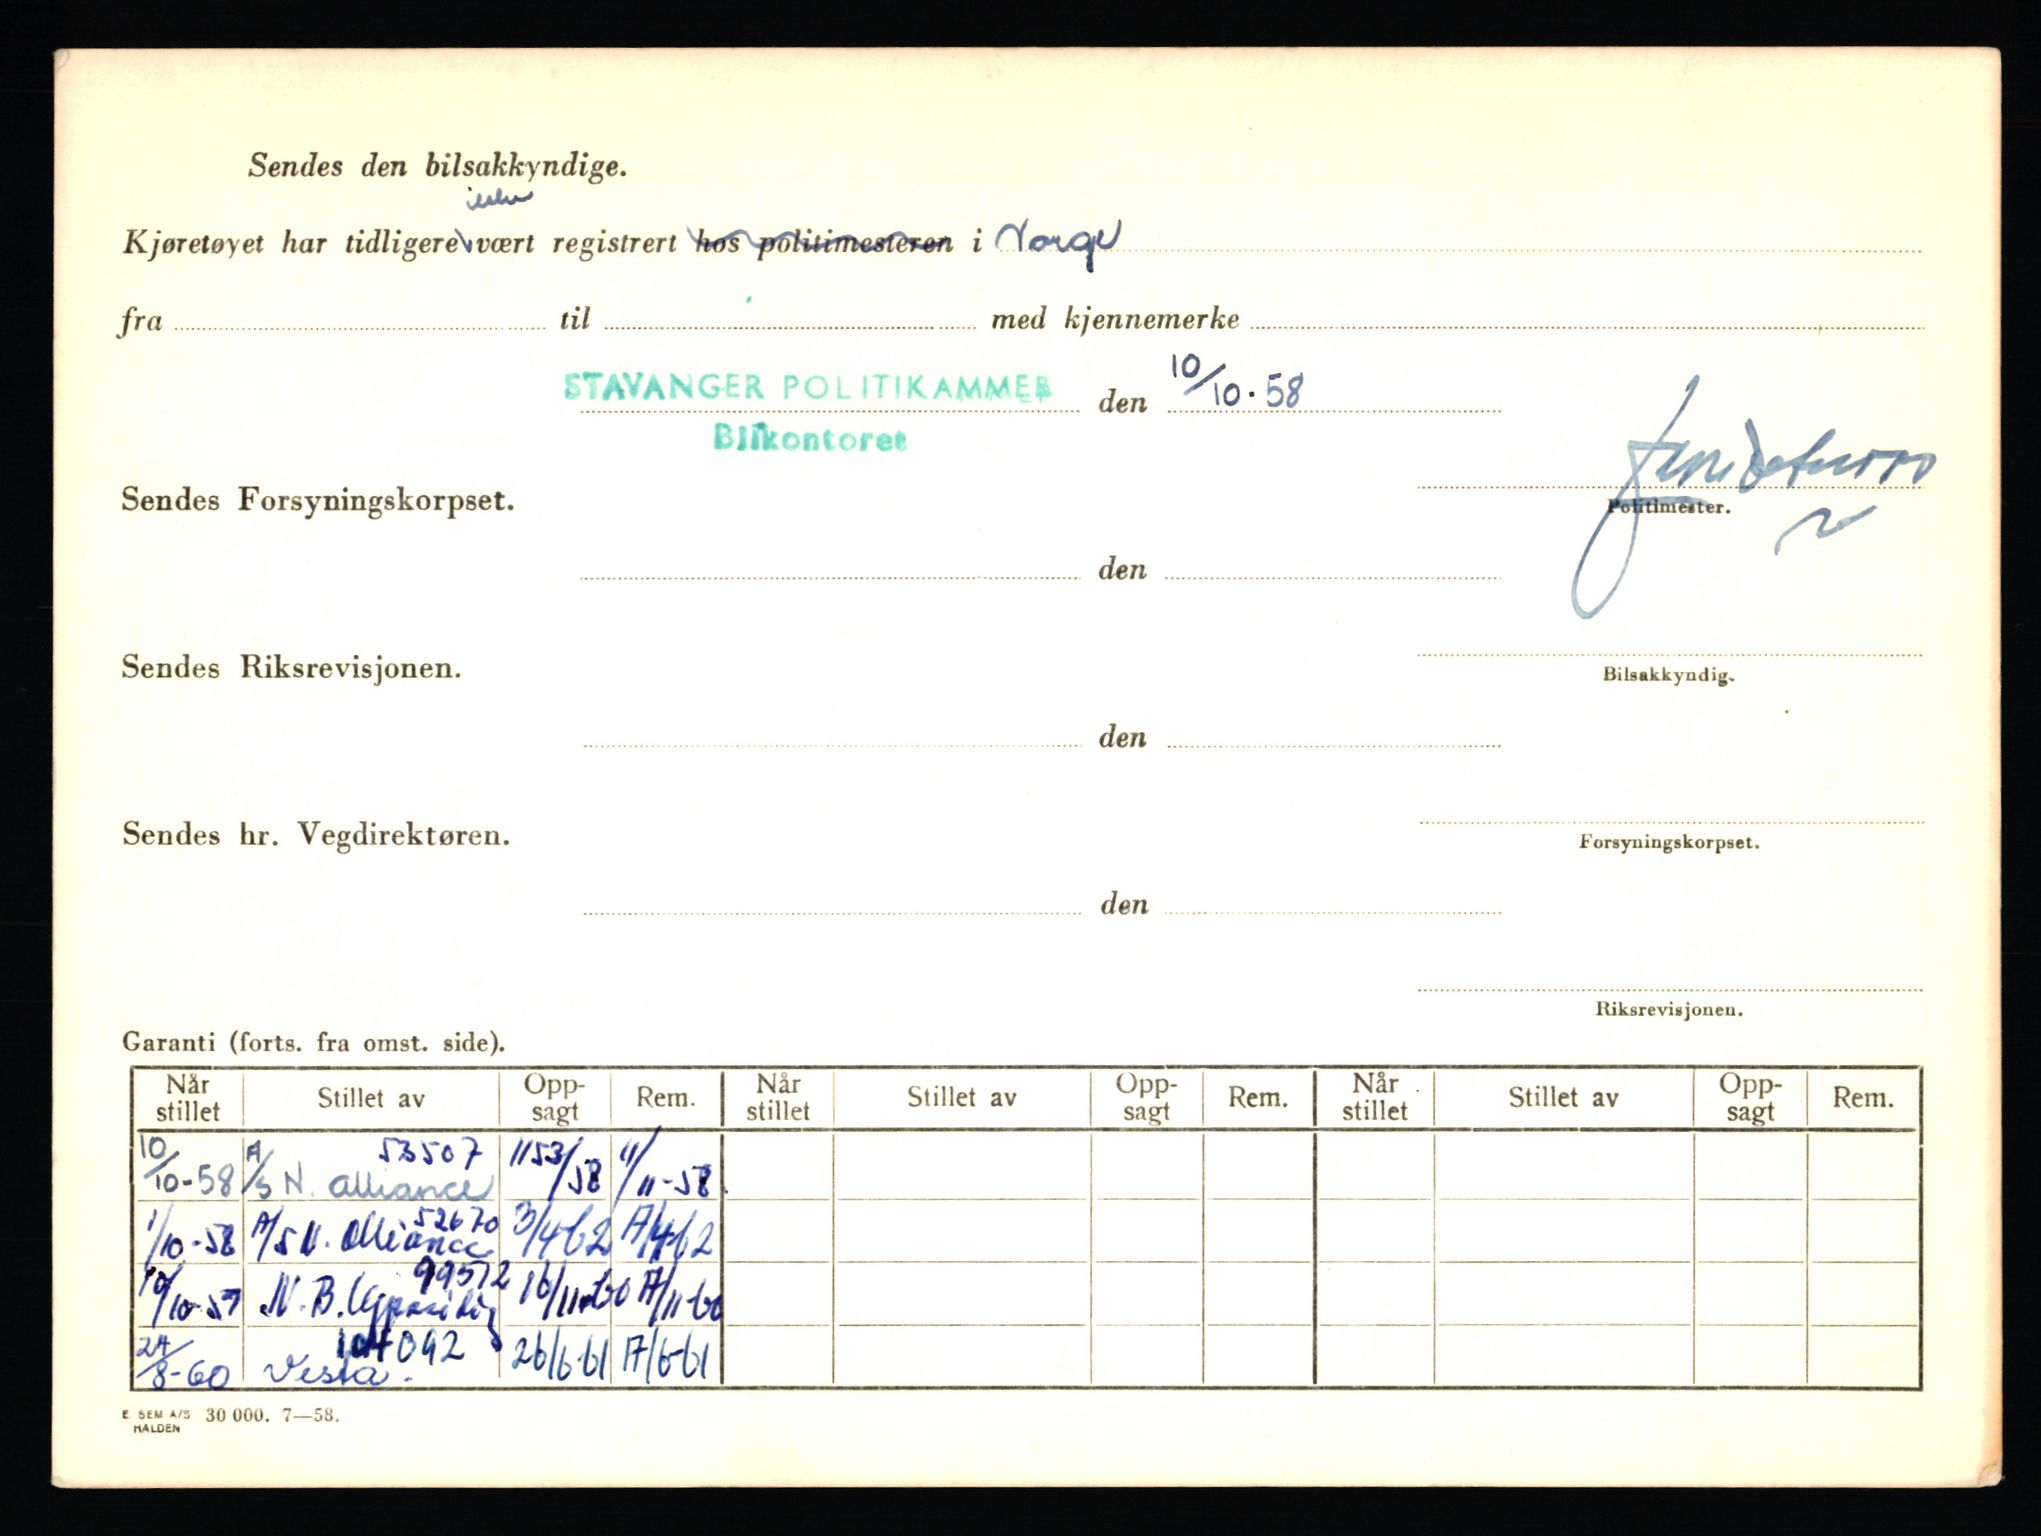 Sendes den bilsakkyndige.
ikke
Kjøretøyet har tidligere vært registrert hos politimesteren i Norge
fra til med kjennemerke
10/10-58
STAVANGER POLITIKAMMER den
Bilkontoret
Sendes Forsyningskorpset.
Politimester.
den
Sendes Riksrevisjonen.
Bilsakkyndig.
den
Sendes hr. Vegdirektøren.
Forsyningskorpset.
den
Riksrevisjonen.
Garanti (forts. fra omst. side).
Når stillet Stillet av Opp-sagt Rem. Når stillet Stillet av Opp-sagt Rem. Når stillet Stillet av Opp-sagt Rem.
10/10-58 A/S N. Alliance 53507 1153/58 11/11-58
1/10-58 A/S N. Alliance 52670 3/4-62 17/4-62
10/10-59 N.B. 99572 16/11-60 17/11-60
24/8-60 Vesta. 104092 26/6-61 17/6-61
E. SEM A/S 30 000. 7—58.
HALDEN